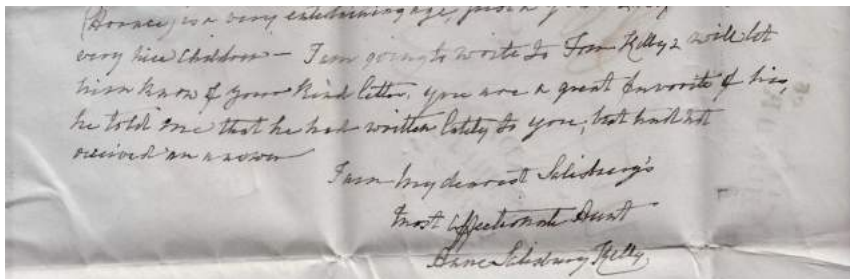 (Horace) is a very entertaining age,
very nice Children – I am going to write to Tom Kelly & will let
him know of your kind letter, you are a great favorite of his,
he told me that he had written lately to you, but had not
received an answer
I am my dearest Salisbury's
most affectionate Aunt
Anne Salisbury Kelly